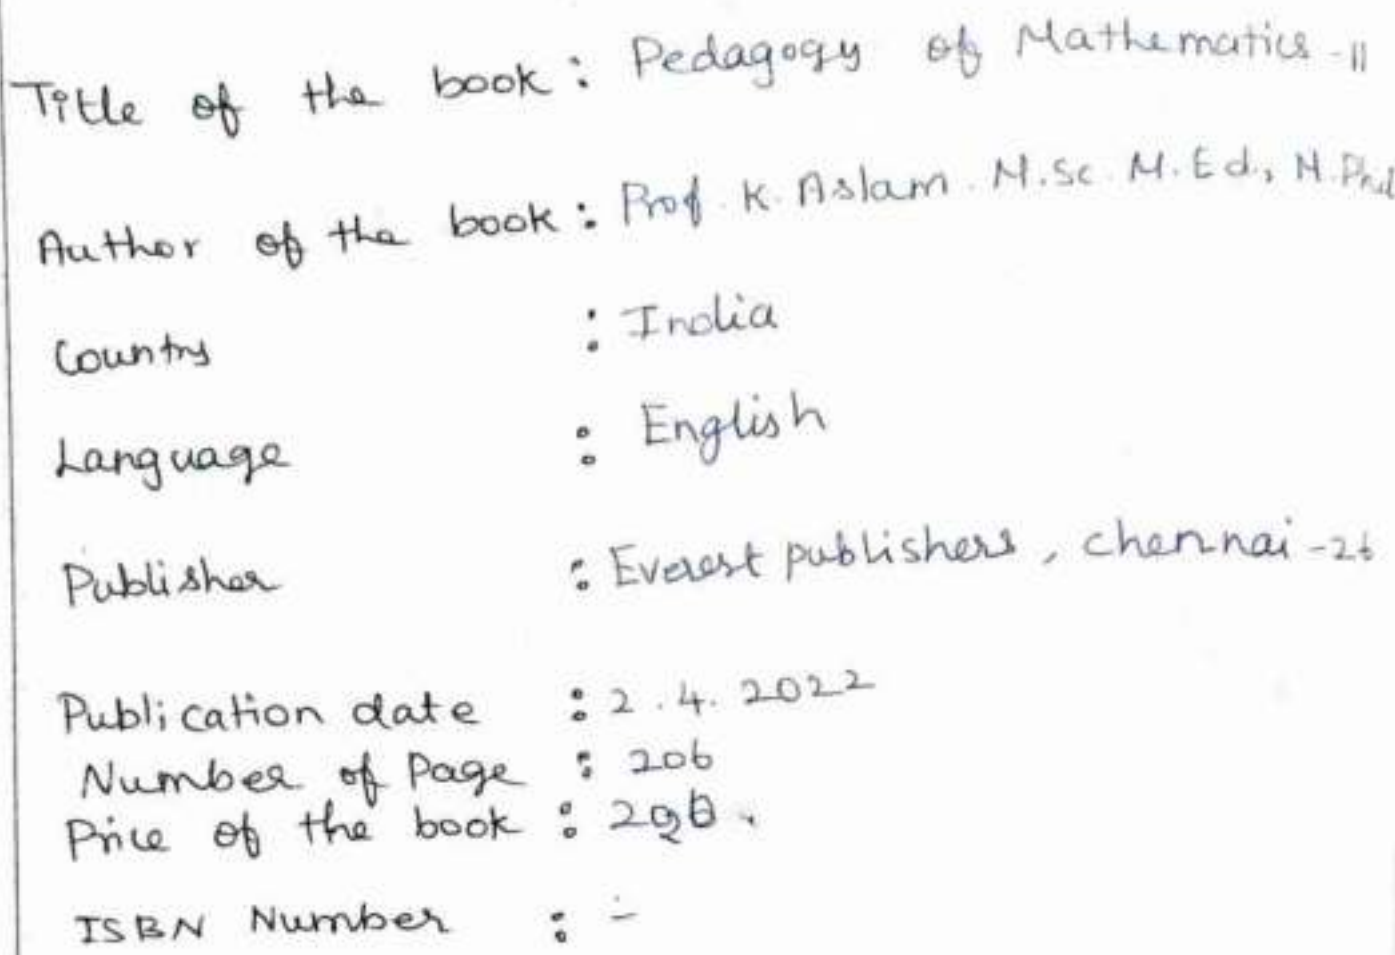 Title of the book : Pedagogy of Mathematics - II
Author of the book : Prof. K. Aslam. M.Sc. M.Ed., M.Phil
Country : India
Language : English
Publisher : Everest publishers, chennai - 26
Publication date : 2.4.2022
Number of Page : 206
Price of the book :
ISBN Number : -